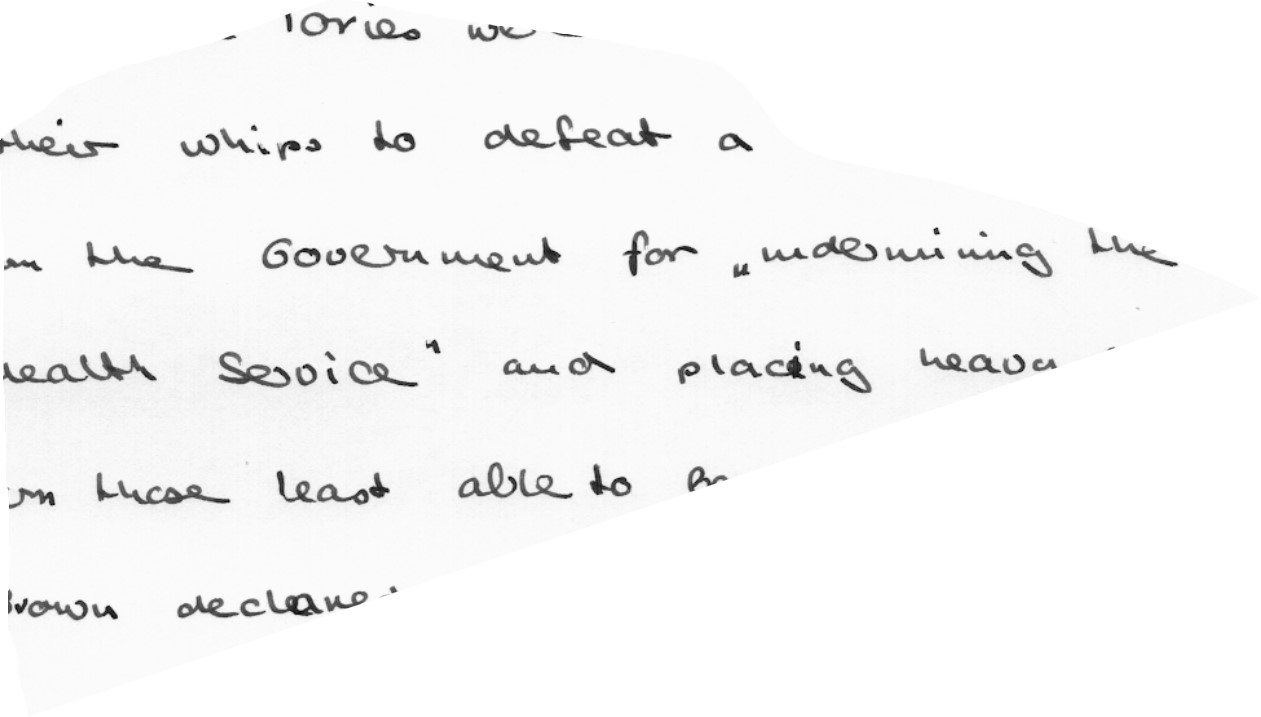 Tories we
their whips to defeat a
on the Government for „undermining the
Health Service" and placing heavy
on those least able to
Brown declared